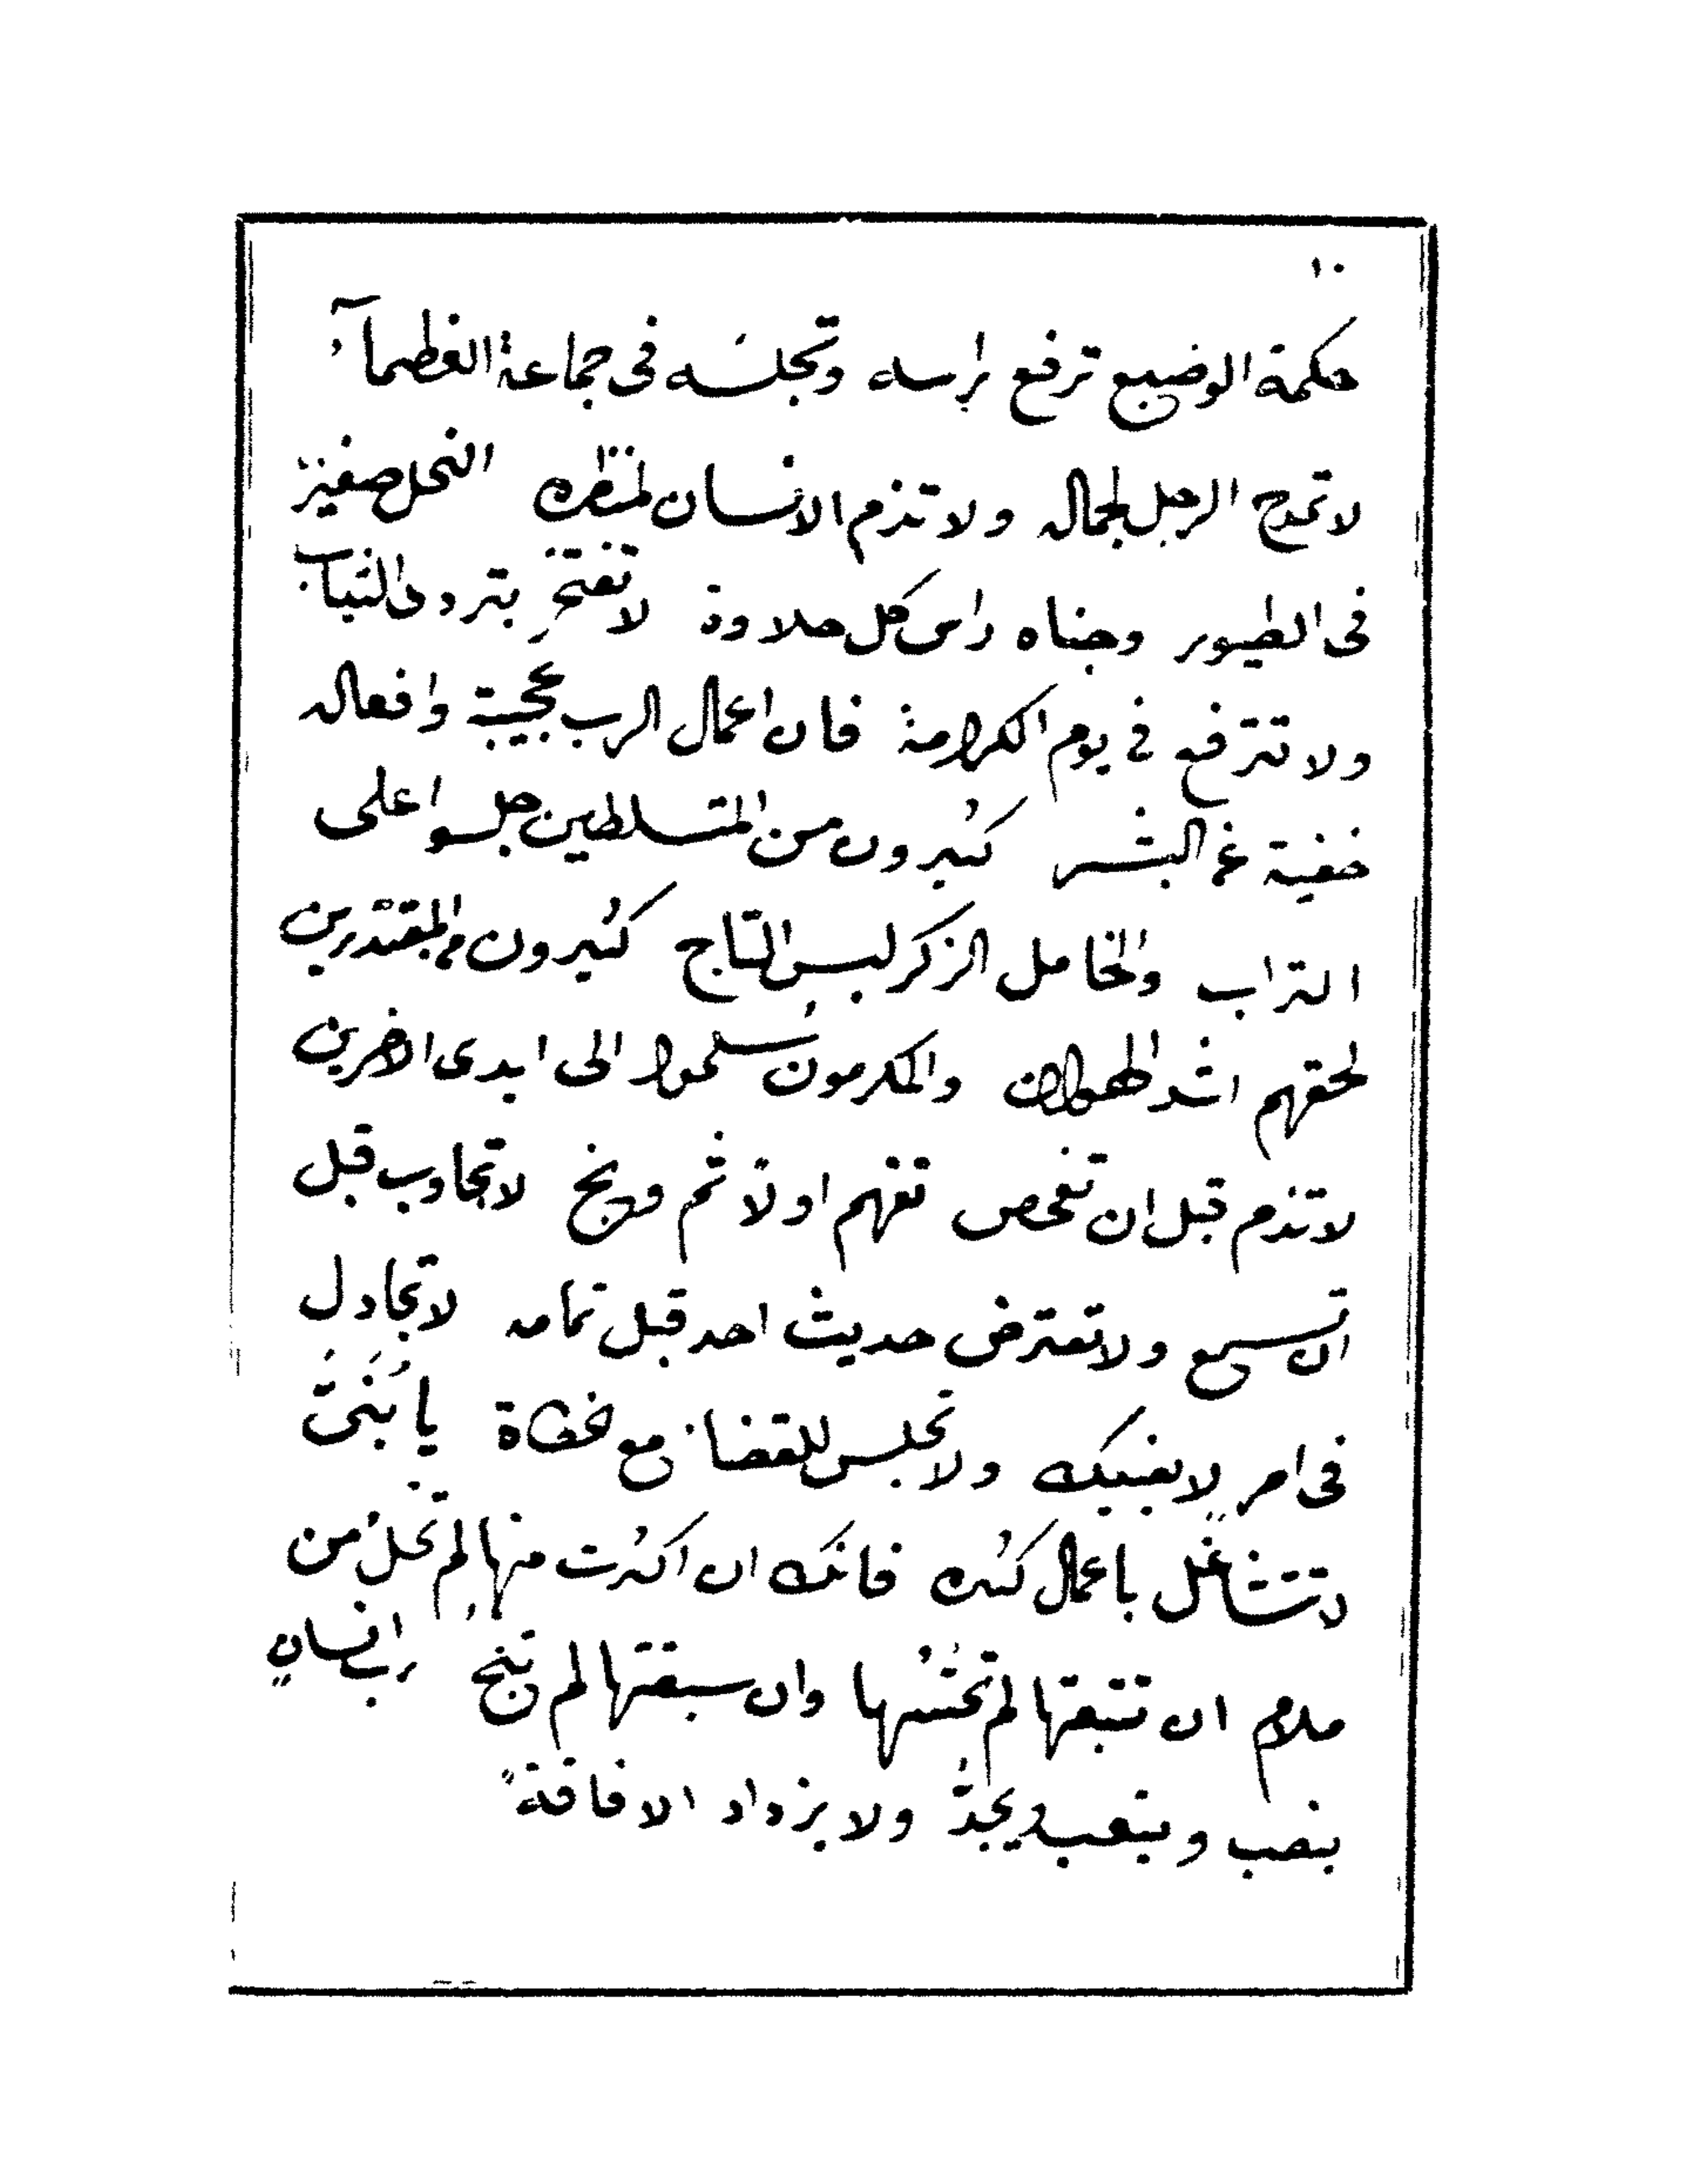 ١٠
حكمة الوضيع ترفع براسه وتجلسه فى جماعة العظمآء
لا تمدح الرجل لجماله ولا تذم الانسان لمنظره النحل صغيرة
فى الطيور وجناه راس كل حلاوة لا تفتخر بتردى الثياب
ولا تترفع فى يوم الكرامة فان اعمال الرب عجيبة وافعاله
خفية عن البشر كثيرون من المتسلطين جلسوا على
التراب والخامل الذكر لبس التاج كثيرون من المقتدرين
لحقهم اشد الهوان والمكرمون سلموا الى ايدى الاخرين
لا تذم قبل ان تفحص تفهم اولًا ثم وبخ لا تجاوب قبل
ان تسمع ولا تعترض حديث احد قبل تمامه لا تجادل
فى امر لا يعنيك ولا تجلس للقضاء مع خطاة يا بُنَىَّ
لا تتشاغل باعمال كثيرة فانك ان اكثرت منها لم تخلُ من
ملام ان تتبعتها لم تحُشْها وان سبقتها لم تنج رب انسانٍ
ينصب ويتعب ويجدُّ ولا يزداد الا فاقةً